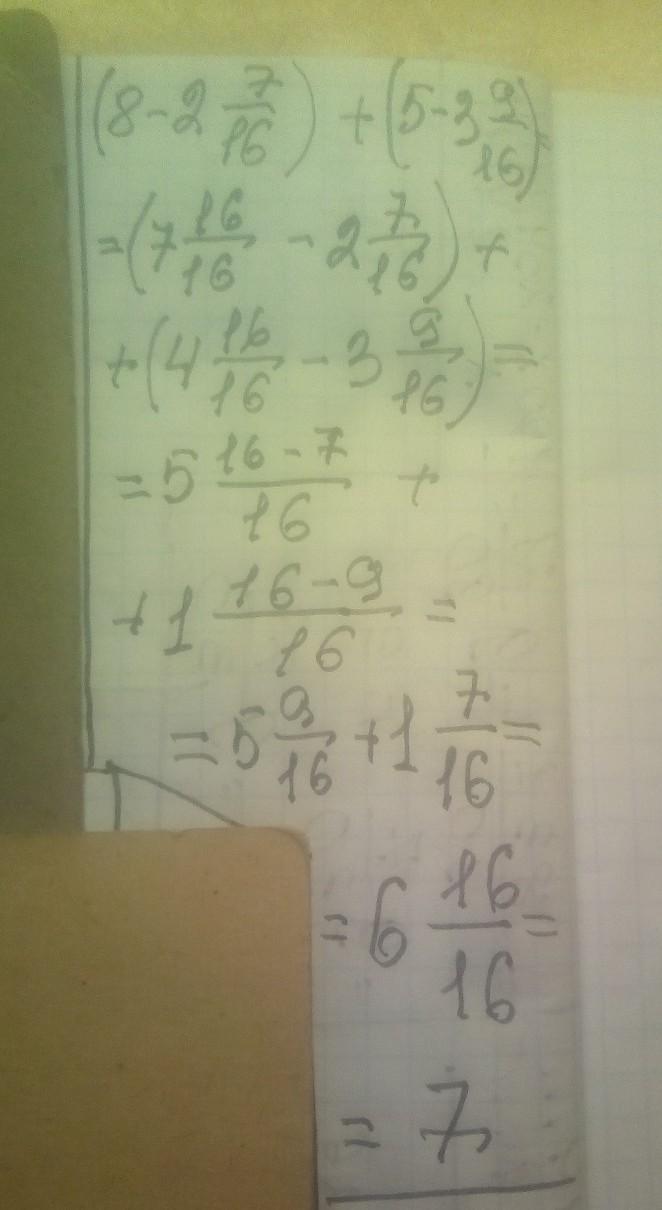 (8-2 7/16) + (5-3 9/16)=
=(7 16/16 - 2 7/16) +
+(4 16/16 - 3 9/16)=
=5 (16-7)/16 +
+1 (16-9)/16 =
=5 9/16 +1 7/16=
=6 16/16=
= 7